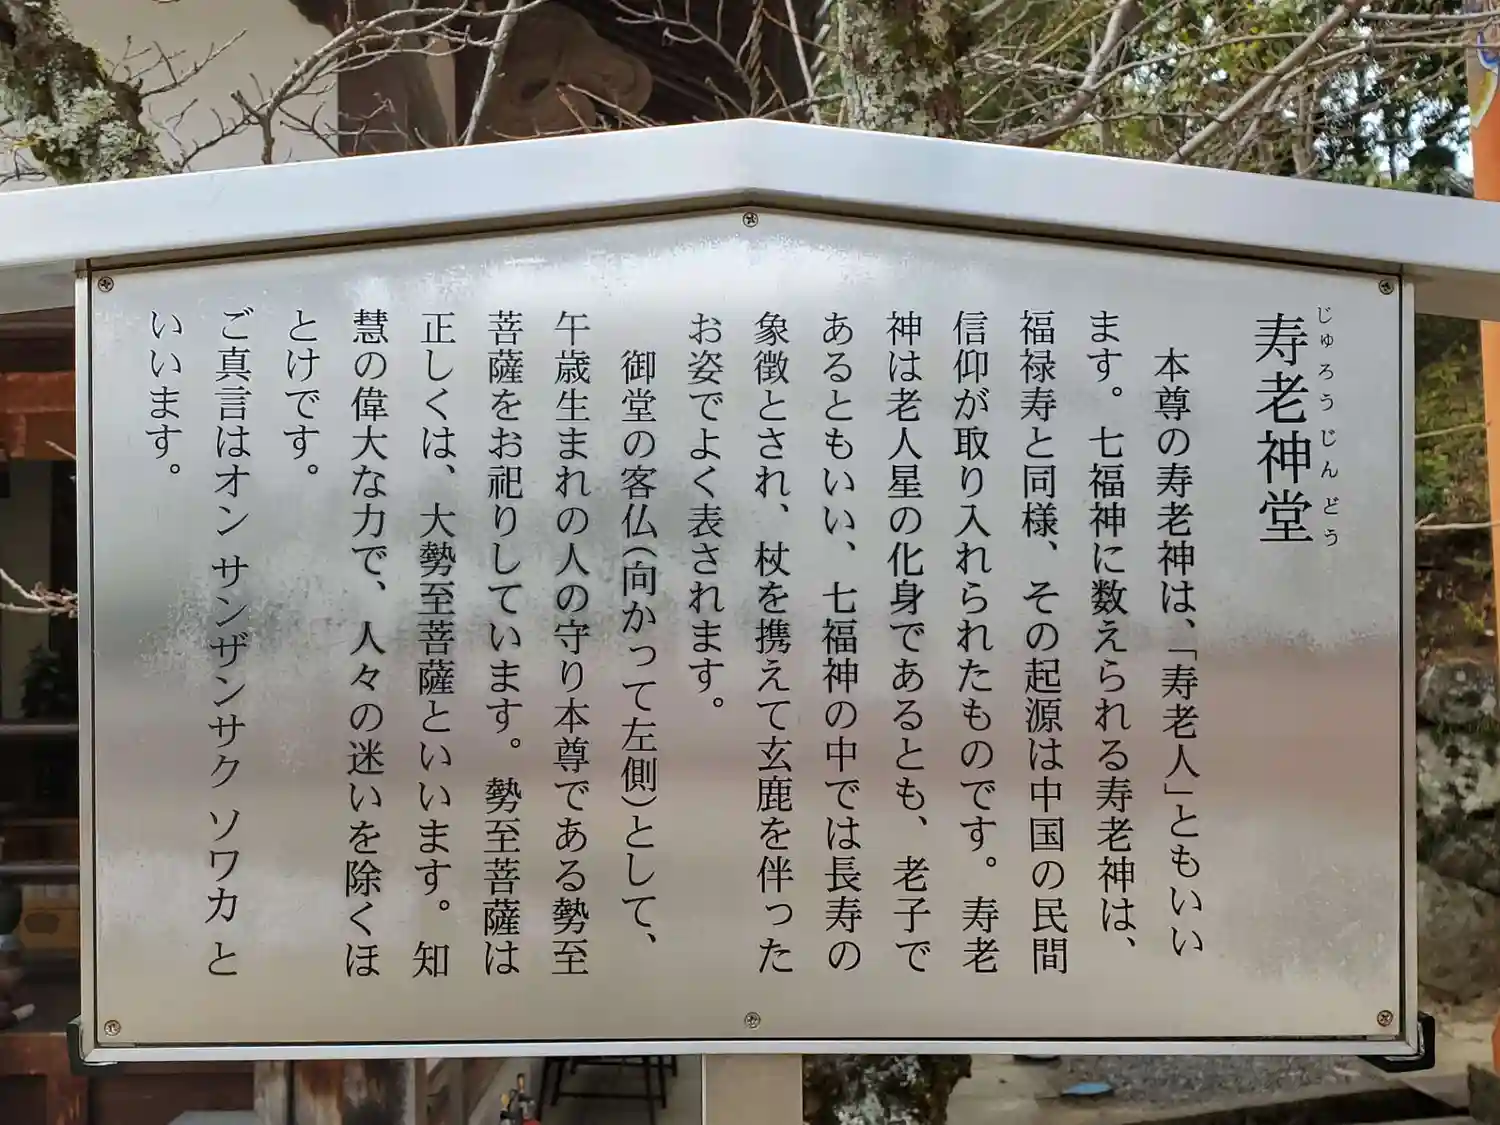 じゅろうじんどう
寿老神堂
本尊の寿老神は、「寿老人」ともいい
ます。七福神に数えられる寿老神は、
福禄寿と同様、その起源は中国の民間
信仰が取り入れられたものです。寿老
神は老人星の化身であるとも、老子で
あるともいい、七福神の中では長寿の
象徴とされ、杖を携えて玄鹿を伴った
お姿でよく表されます。
御堂の客仏(向かって左側)として、
午歳生まれの人の守り本尊である勢至
菩薩をお祀りしています。勢至菩薩は
正しくは、大勢至菩薩といいます。知
慧の偉大な力で、人々の迷いを除くほ
とけです。
ご真言はオン サンザンサク ソワカ と
いいます。